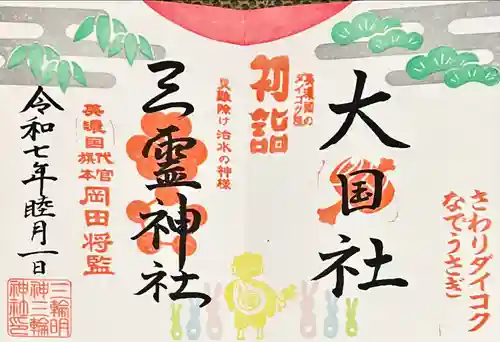 大国社
さわりダイコク
なでうさぎ
美濃国の
ダイコク様
初詣
災難除け 治水の神様
三霊神社
美濃国代官
旗本 岡田将監
令和七年睦月一日
三輪明
神三輪
神社印